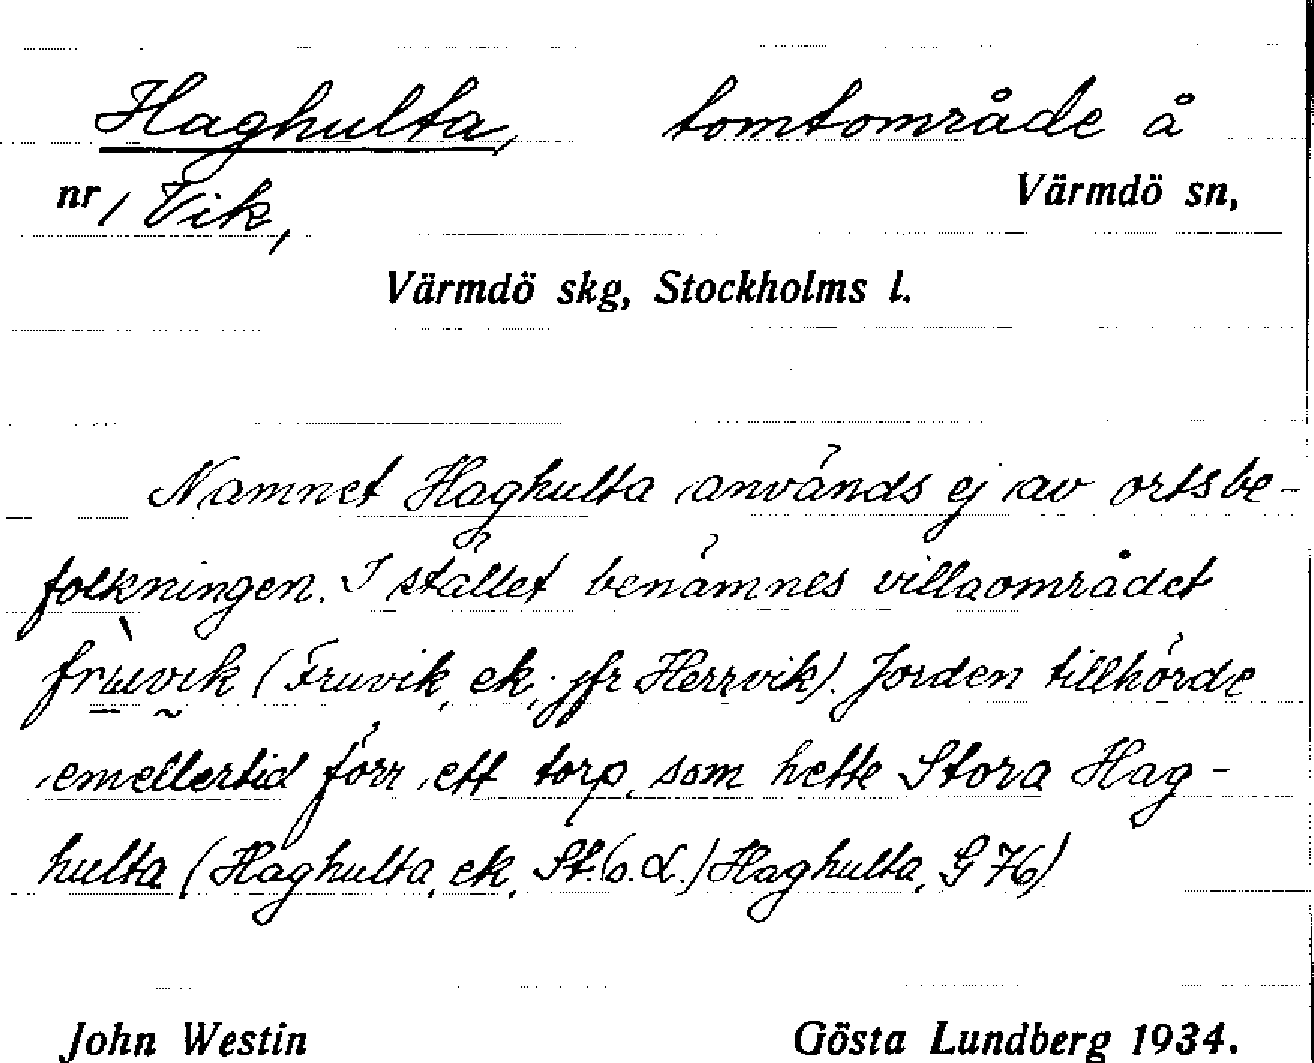 Haghulta, tomtområde å
nr 1 Vik, Värmdö sn,
Värmdö skg, Stockholms l.
Namnet Haghulta används ej av ortsbe-
folkningen. I stället benämnes villaområdet
(Fruvik, ek; jfr Herrvik). Jorden tillhörde
emellertid förr ett torp, som hette Stora Hag-
hulta (Haghulta, ek, St. (o. L.) Haghulta, G 76)
John Westin Gösta Lundberg 1934.